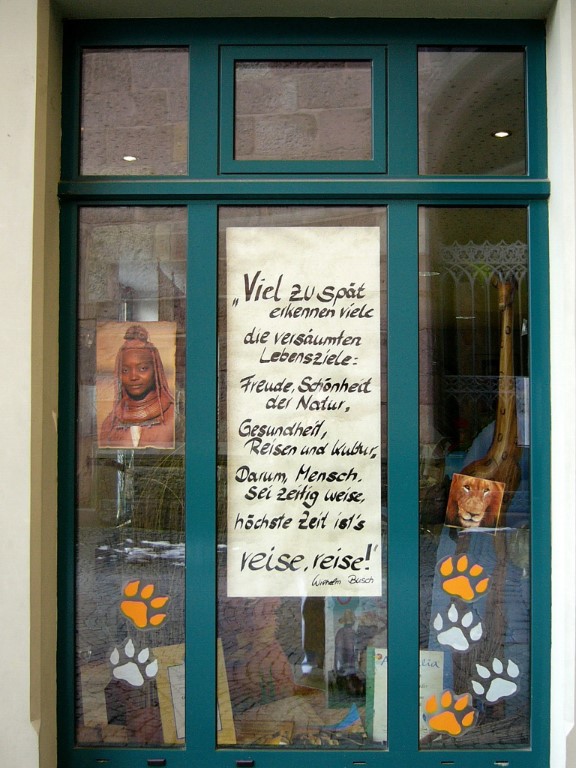 „Viel zu spät
erkennen viele
die versäumten
Lebensziele:
Freude, Schönheit
der Natur,
Gesundheit,
Reisen und Kultur,
Darum, Mensch,
sei zeitig weise,
höchste Zeit ist's
reise, reise!"
Wilhelm Busch